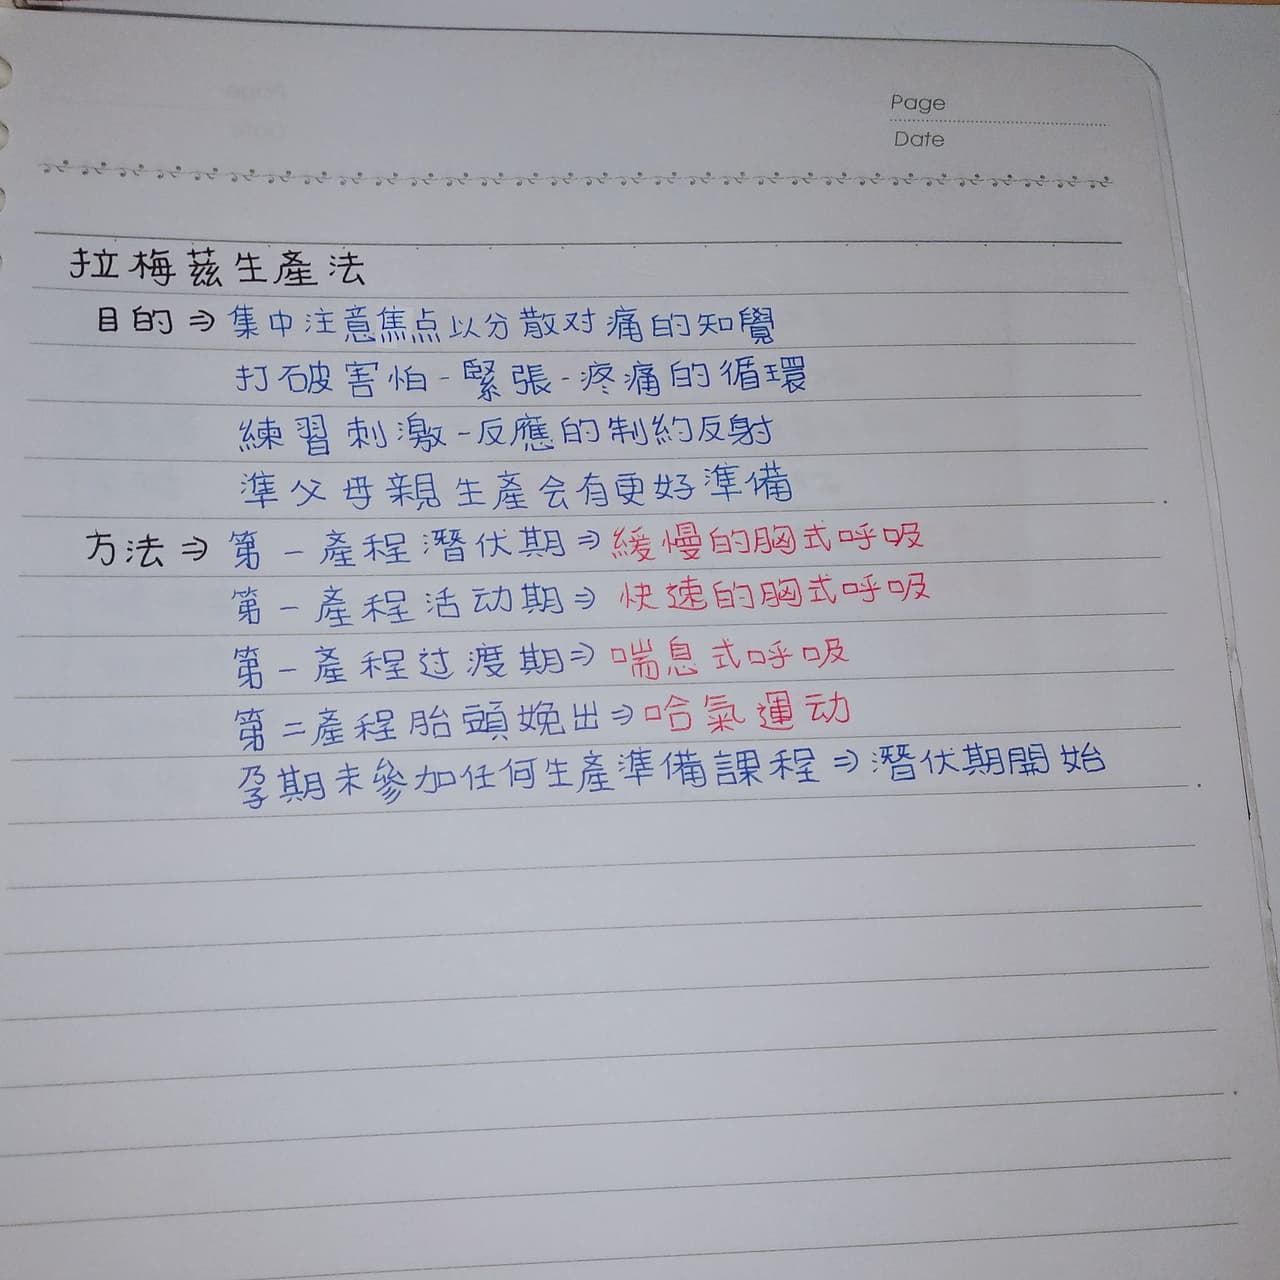 Page
Date
拉梅茲生產法
目的⇒集中注意焦点以分散对痛的知覺
打破害怕-緊張-疼痛的循環
練習刺激-反應的制約反射
準父母親生產会有更好準備
方法⇒第一產程潛伏期⇒緩慢的胸式呼吸
第一產程活动期⇒快速的胸式呼吸
第一產程过渡期⇒喘息式呼吸
第二產程胎頭娩出⇒哈氣運动
孕期未參加任何生產準備課程⇒潛伏期開始